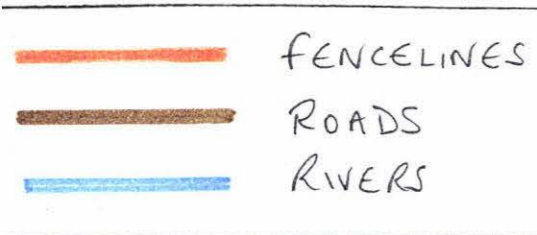 FENCELINES
ROADS
RIVERS